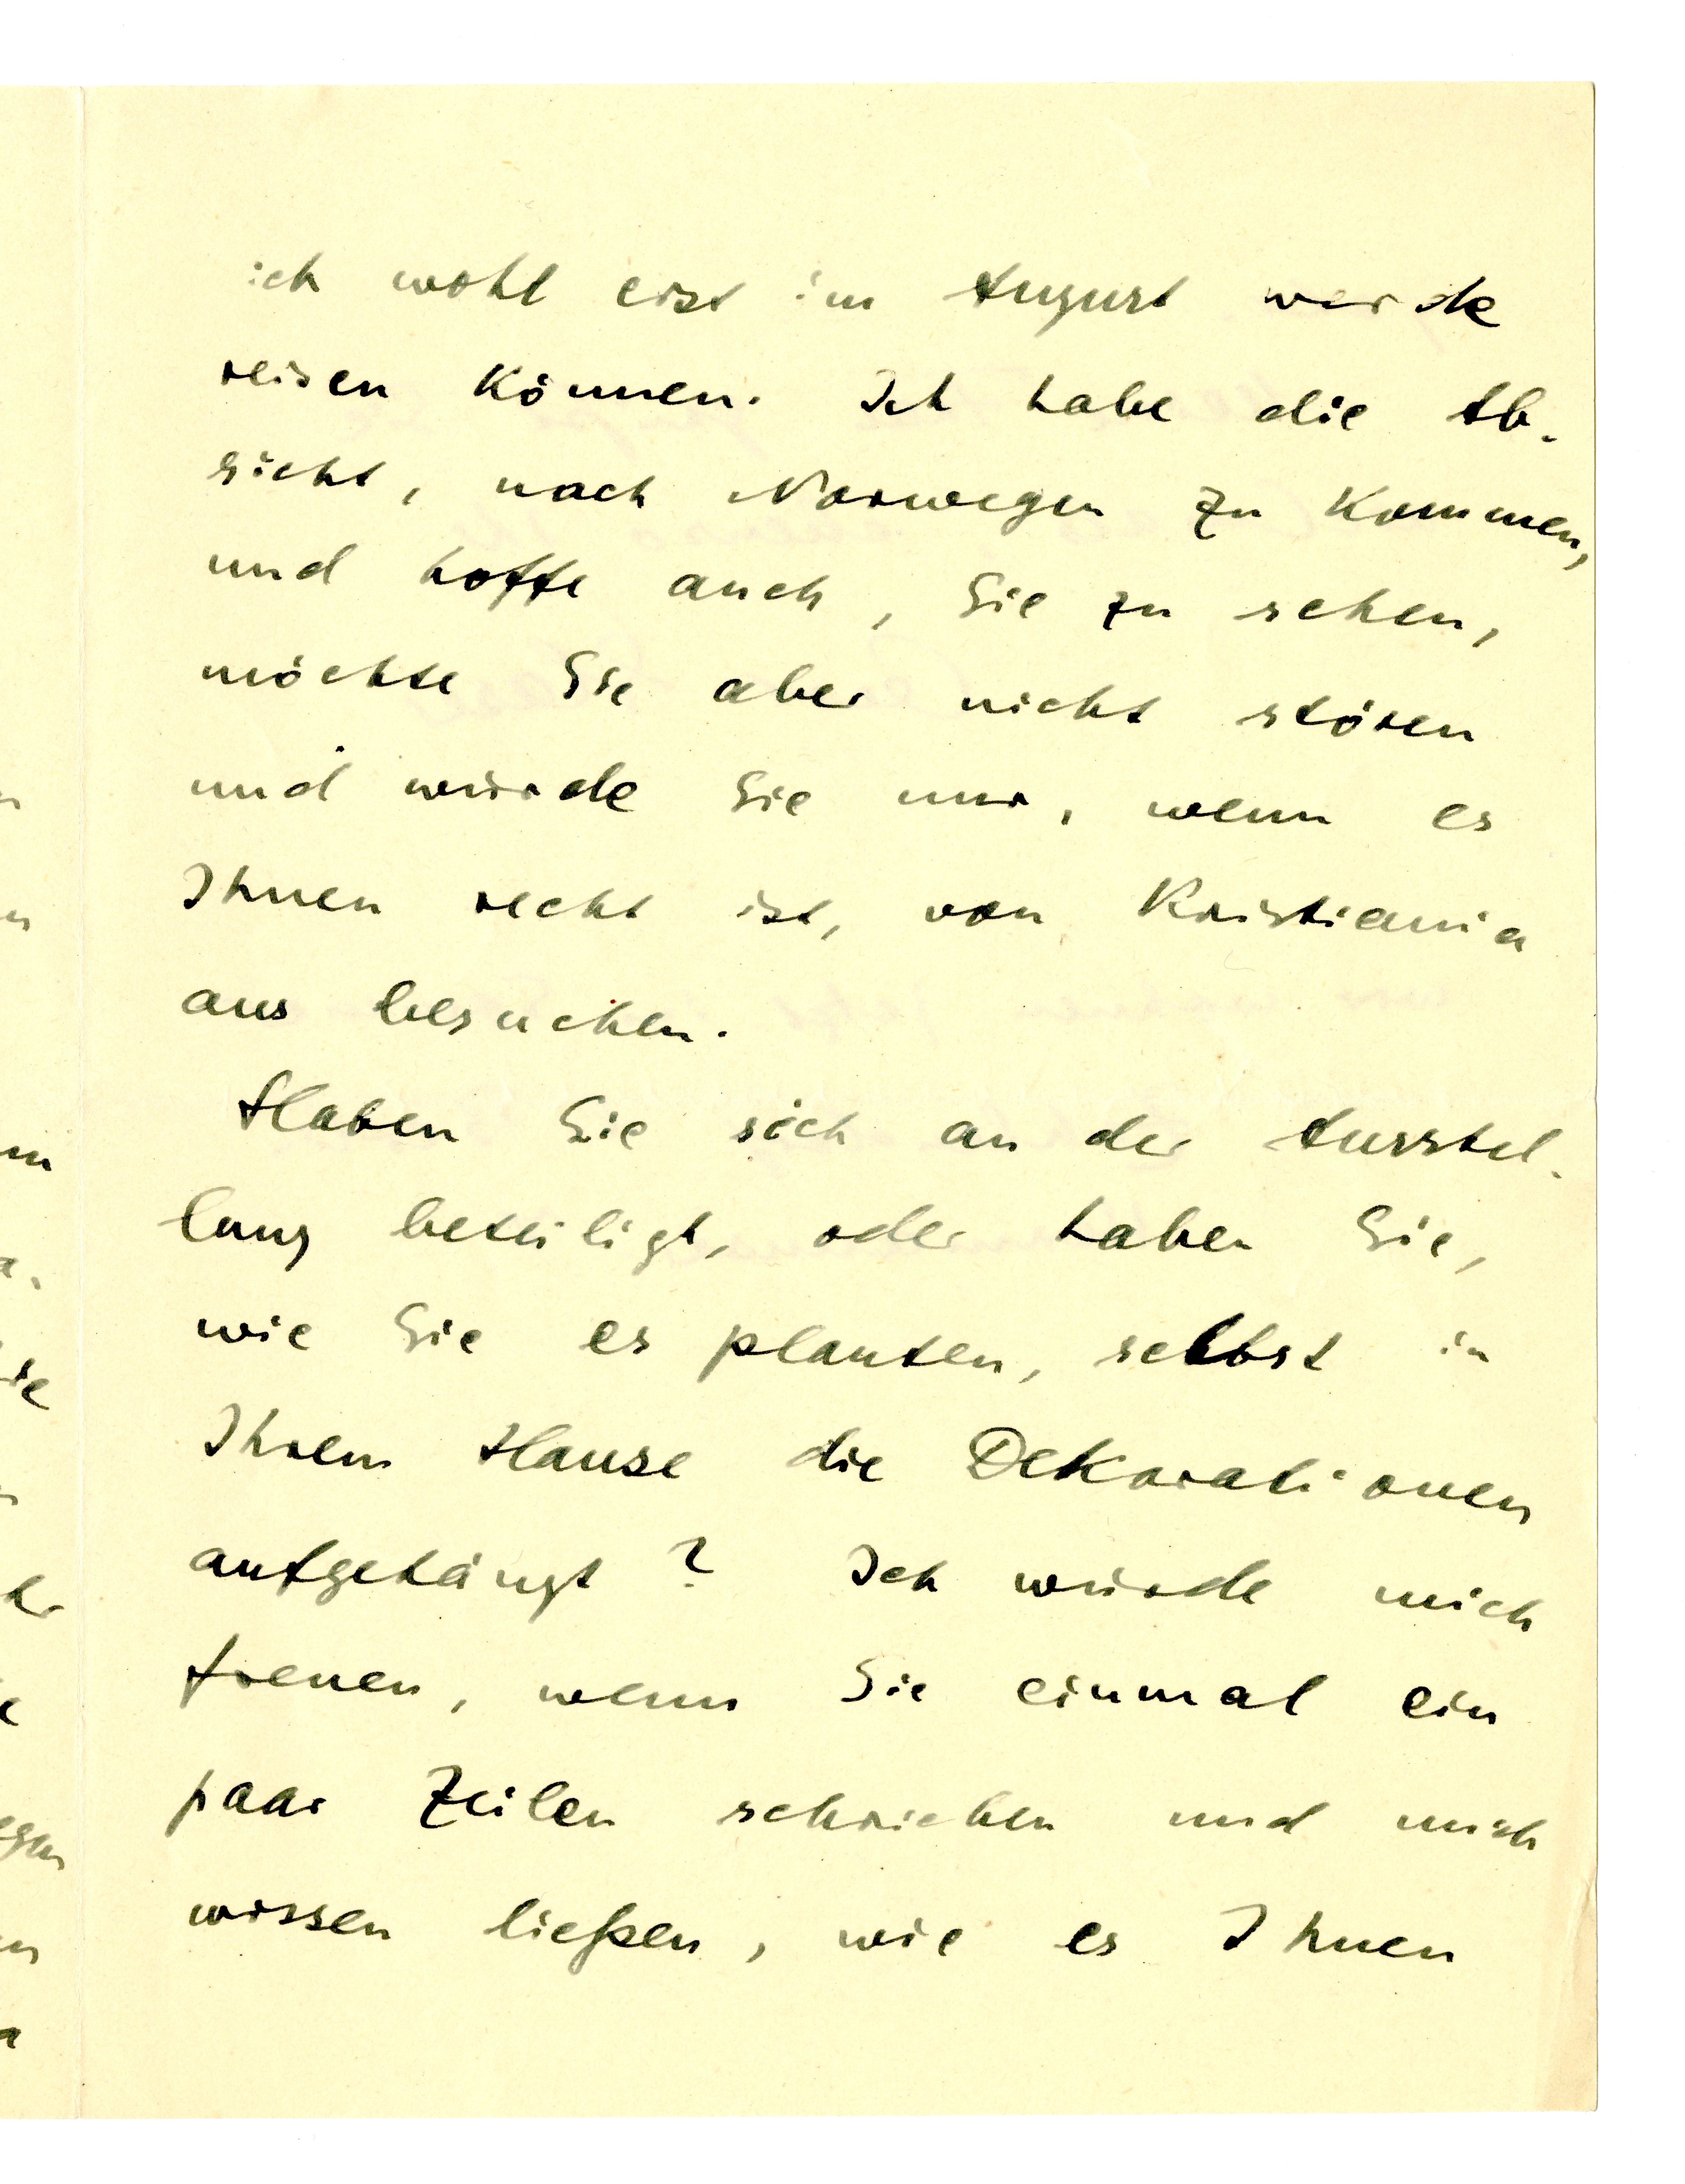 ich wohl erst im August werde
reisen können. Ich habe die Ab-
sicht, nach Norwegen zu kommen,
und hoffe auch, Sie zu sehen,
möchte Sie aber nicht stören
und würde Sie nur, wenn es
Ihnen recht ist, von Kristiania
aus besuchen.
Haben Sie sich an der Ausstel-
lung beteiligt, oder haben Sie,
wie Sie es planten, selbst in
Ihrem Hause die Dekorationen
aufgehängt? Ich würde mich
freuen, wenn Sie einmal ein
paar Zeilen schrieben und mich
wissen ließen, wie es Ihnen